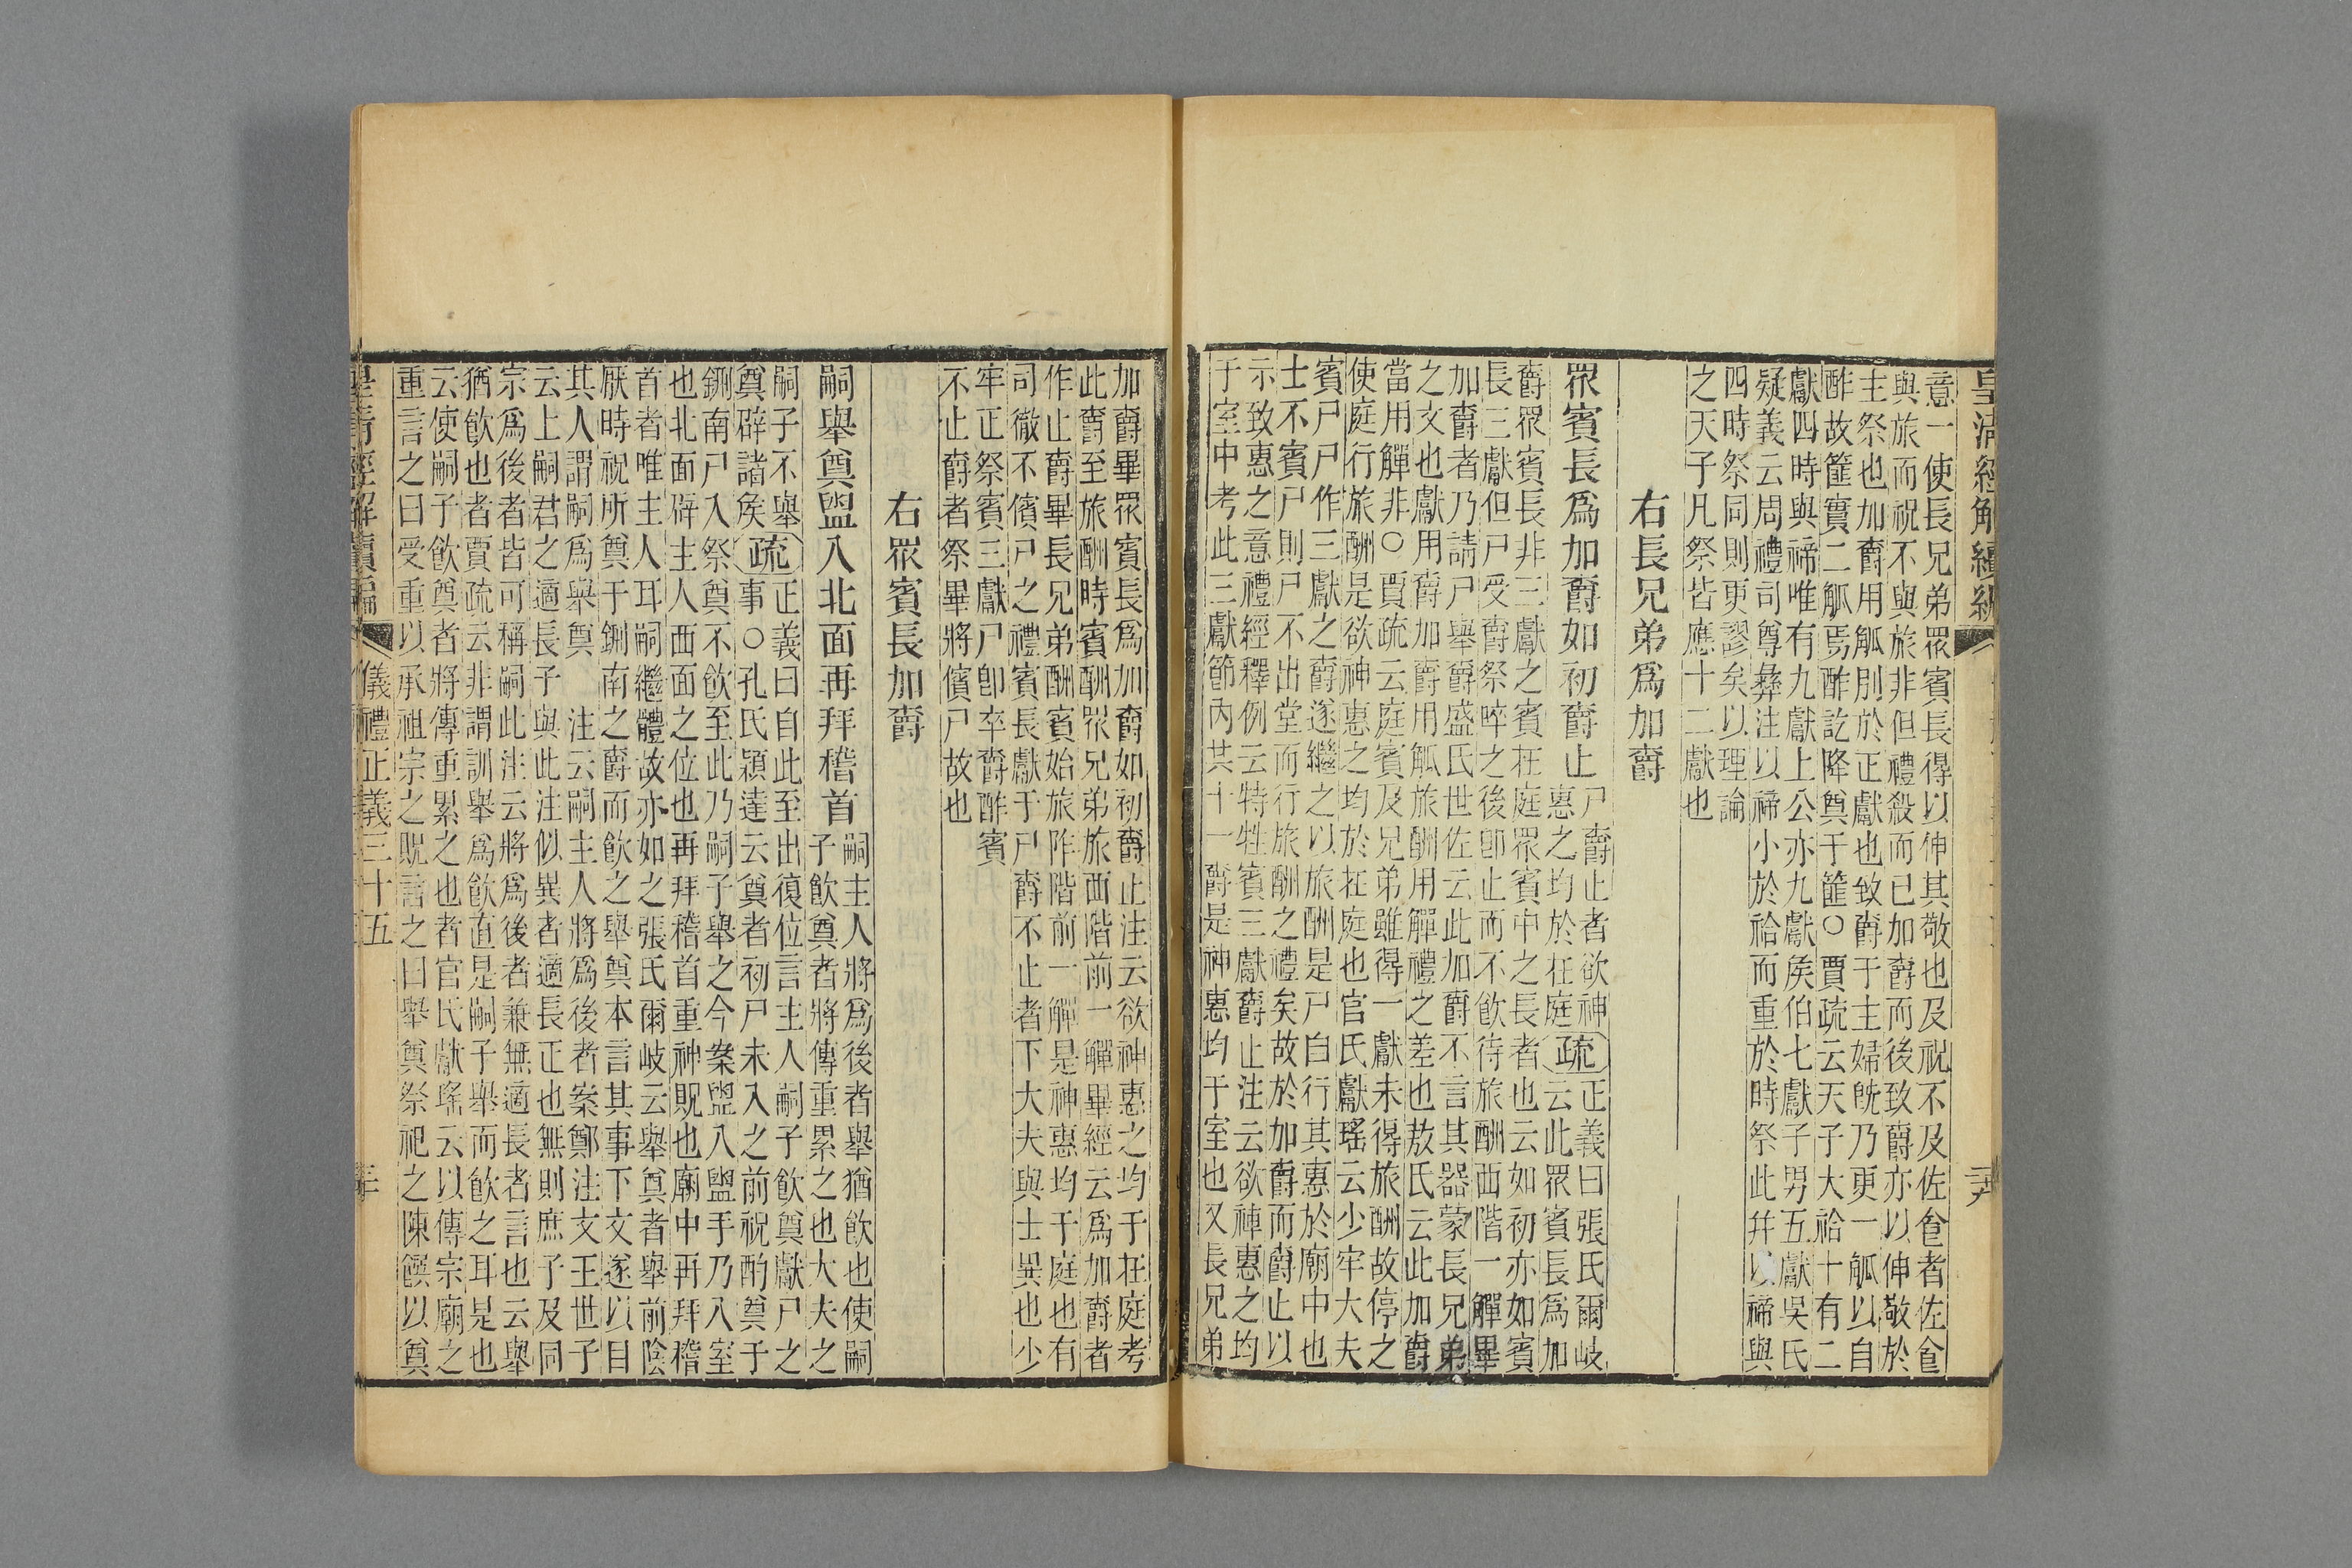 皇清經解續編
意一使長兄弟眾賓長得以伸其敬也及祝不及佐食者佐食
與旅而祝不與旅非但禮殺而已加爵而後致爵亦以伸敬於
主祭也加爵用觚別於正獻也致爵于主婦旣乃更一觚以自
酢故篚實二觚焉酢訖降奠于篚○賈疏云天子大祫十有二
獻四時與禘唯有九獻上公亦九獻矦伯七獻子男五獻吳氏
疑義云周禮司尊彝注以禘小於祫而重於時祭此幷以禘與
四時祭同則更謬矣以理論
之天子凡祭皆應十二獻也
右長兄弟爲加爵
眾賓長爲加爵如初爵止
尸爵止者欲神
惠之均於在庭
疏
正義曰張氏爾岐
云此眾賓長爲加
爵眾賓長非三獻之賓在庭眾賓中之長者也云如初亦如賓
長三獻但尸受爵祭啐之後卽止而不飲待旅酬西階一觶畢
加爵者乃請尸舉爵盛氏世佐云此加爵不言其器蒙長兄弟
之文也獻用爵加爵用觚旅酬用觶禮之差也敖氏云此加爵
當用觶非○賈疏云庭賓及兄弟雖得一獻未得旅酬故停之
使庭行旅酬是欲神惠之均於在庭也官氏獻瑤云少牢大夫
賓尸尸作三獻之爵遂繼之以旅酬是尸自行其惠於廟中也
士不賓尸則尸不出堂而行旅酬之禮矣故於加爵而爵止以
示致惠之意禮經釋例云特牲賓三獻爵止注云欲神惠之均
于室中考此三獻節內其十一爵是神惠均于室也又長兄弟
加爵畢眾賓長爲加爵如初爵止注云欲神惠之均于在庭考
此爵至旅酬時賓酬眾兄弟旅西階前一觶畢經云爲加爵者
作止爵畢長兄弟酬賓始旅阼階前一觶是神惠均于庭也有
司徹不儐尸之禮賓長獻于尸爵不止者下大夫與士異也少
牢正祭賓三獻尸卽卒爵酢賓
不止爵者祭畢將儐尸故也
右眾賓長加爵
嗣舉奠盥入北面再拜稽首
嗣主人將爲後者舉猶飲也使嗣
子飲奠者將傳重累之也大夫之
嗣子不舉
奠辟諸矦
疏
正義曰自此至出復位言主人嗣子飲奠獻尸之
事○孔氏穎達云奠者初尸未入之前祝酌奠于
鉶南尸入祭奠不飲至此乃嗣子舉之今案盥入盥手乃入室
也北面辟主人西面之位也再拜稽首重神貺也廟中再拜稽
首者唯主人耳嗣繼體故亦如之張氏爾岐云舉奠者舉前陰
厭時祝所奠于鉶南之爵而飲之舉奠本言其事下文遂以目
其人謂嗣爲舉奠 注云嗣主人將爲後者案鄭注文王世子
云上嗣君之適長子與此注似異者適長正也無則庶子及同
宗爲後者皆可稱嗣此注云將爲後者兼無適長者言也云舉
猶飲也者賈疏云非謂訓舉爲飲直是嗣子舉而飲之耳是也
云使嗣子飲奠者將傳重累之也者官氏獻瑤云以傳宗廟之
重言之曰受重以承祖宗之貺言之曰舉奠祭祀之陳饌以奠
皇清經解續編
儀禮正義三十五